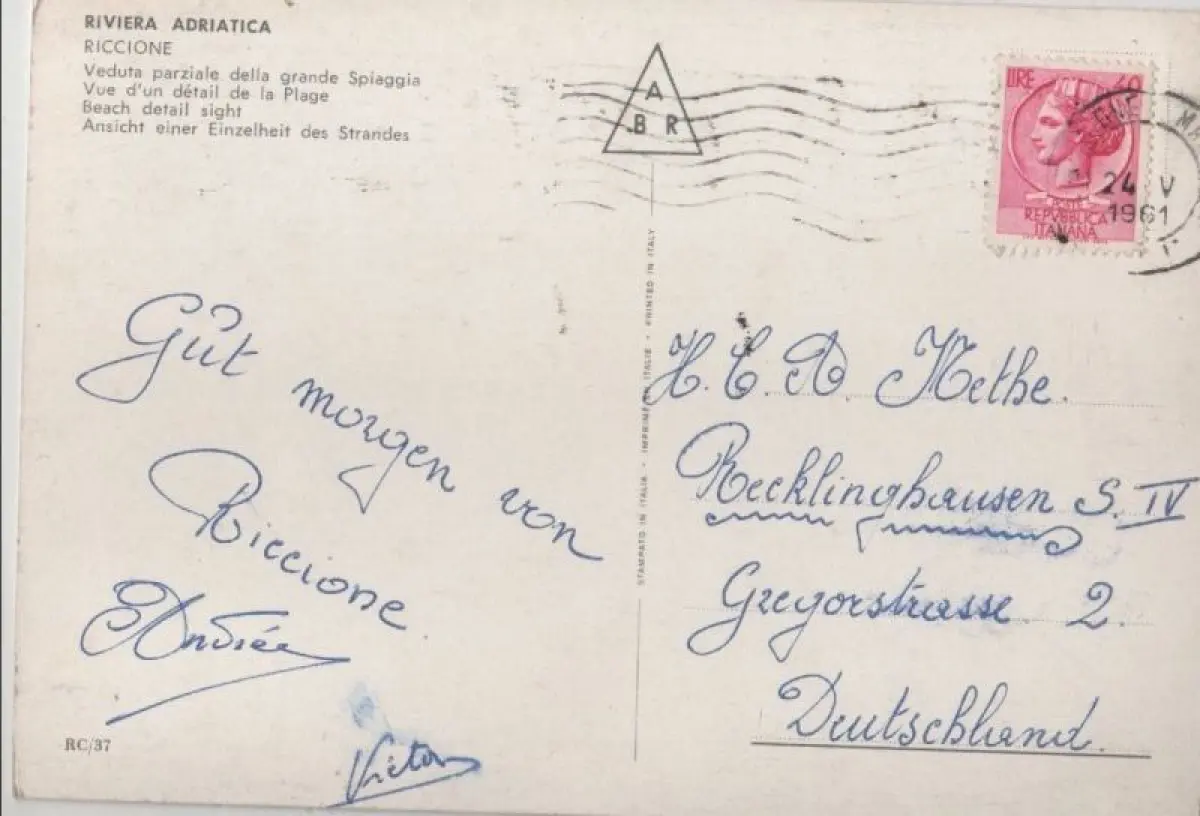 RIVIERA ADRIATICA
RICCIONE
Veduta parziale della grande Spiaggia
Vue d'un détail de la Plage
Beach detail sight
Ansicht einer Einzelheit des Strandes
A
B R
LIRE 40
24 V
1961
POSTE
REPVBBLICA
ITALIANA
STAMPATO IN ITALIA - IMPRIMÉ EN ITALIE - PRINTED IN ITALY
Gut
morgen von
Riccione
Andrée
Victor
H. C. D. Methe.
Recklinghausen S. IV
Gregorstrasse 2.
Deutschland.
RC/37